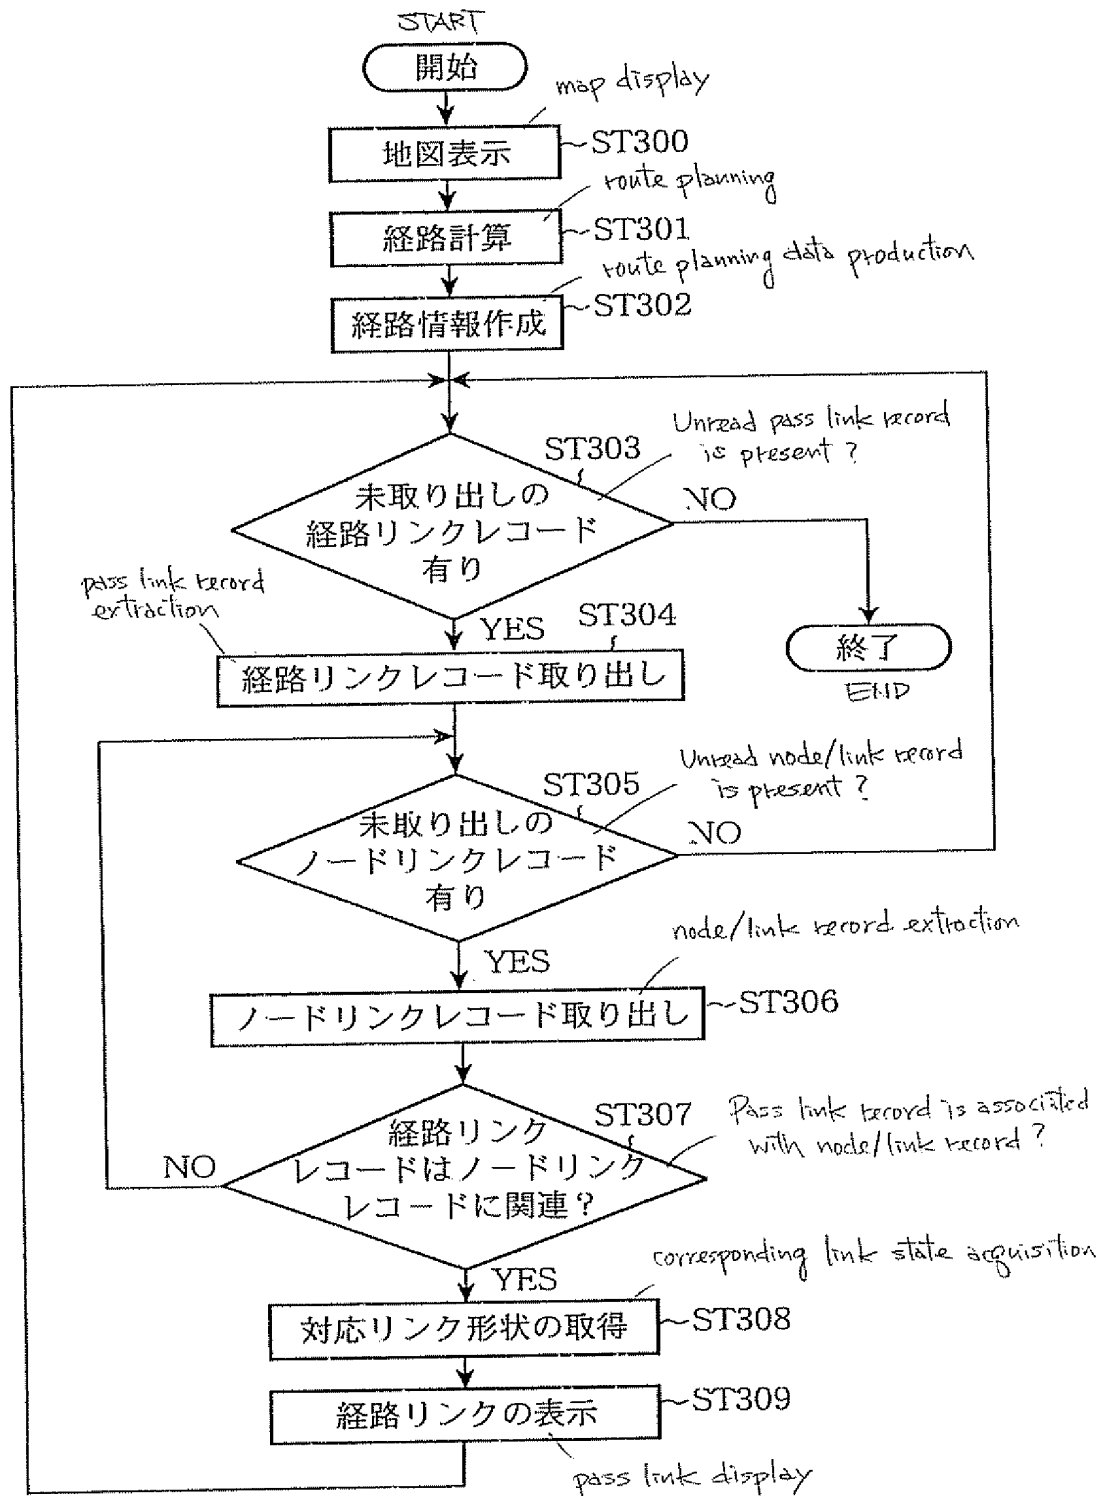 START
開始
map display
地図表示
ST300
route planning
経路計算
ST301
route planning data production
経路情報作成
ST302
Unread pass link record
is present ?
ST303
未取り出しの
経路リンクレコード
有り
NO
pass link record
extraction
YES
ST304
経路リンクレコード取り出し
終了
END
Unread node/link record
is present ?
ST305
未取り出しの
ノードリンクレコード
有り
NO
node/link record extraction
YES
ノードリンクレコード取り出し
ST306
Pass link record is associated
with node/link record ?
ST307
経路リンク
レコードはノードリンク
レコードに関連？
NO
corresponding link state acquisition
YES
対応リンク形状の取得
ST308
経路リンクの表示
ST309
pass link display